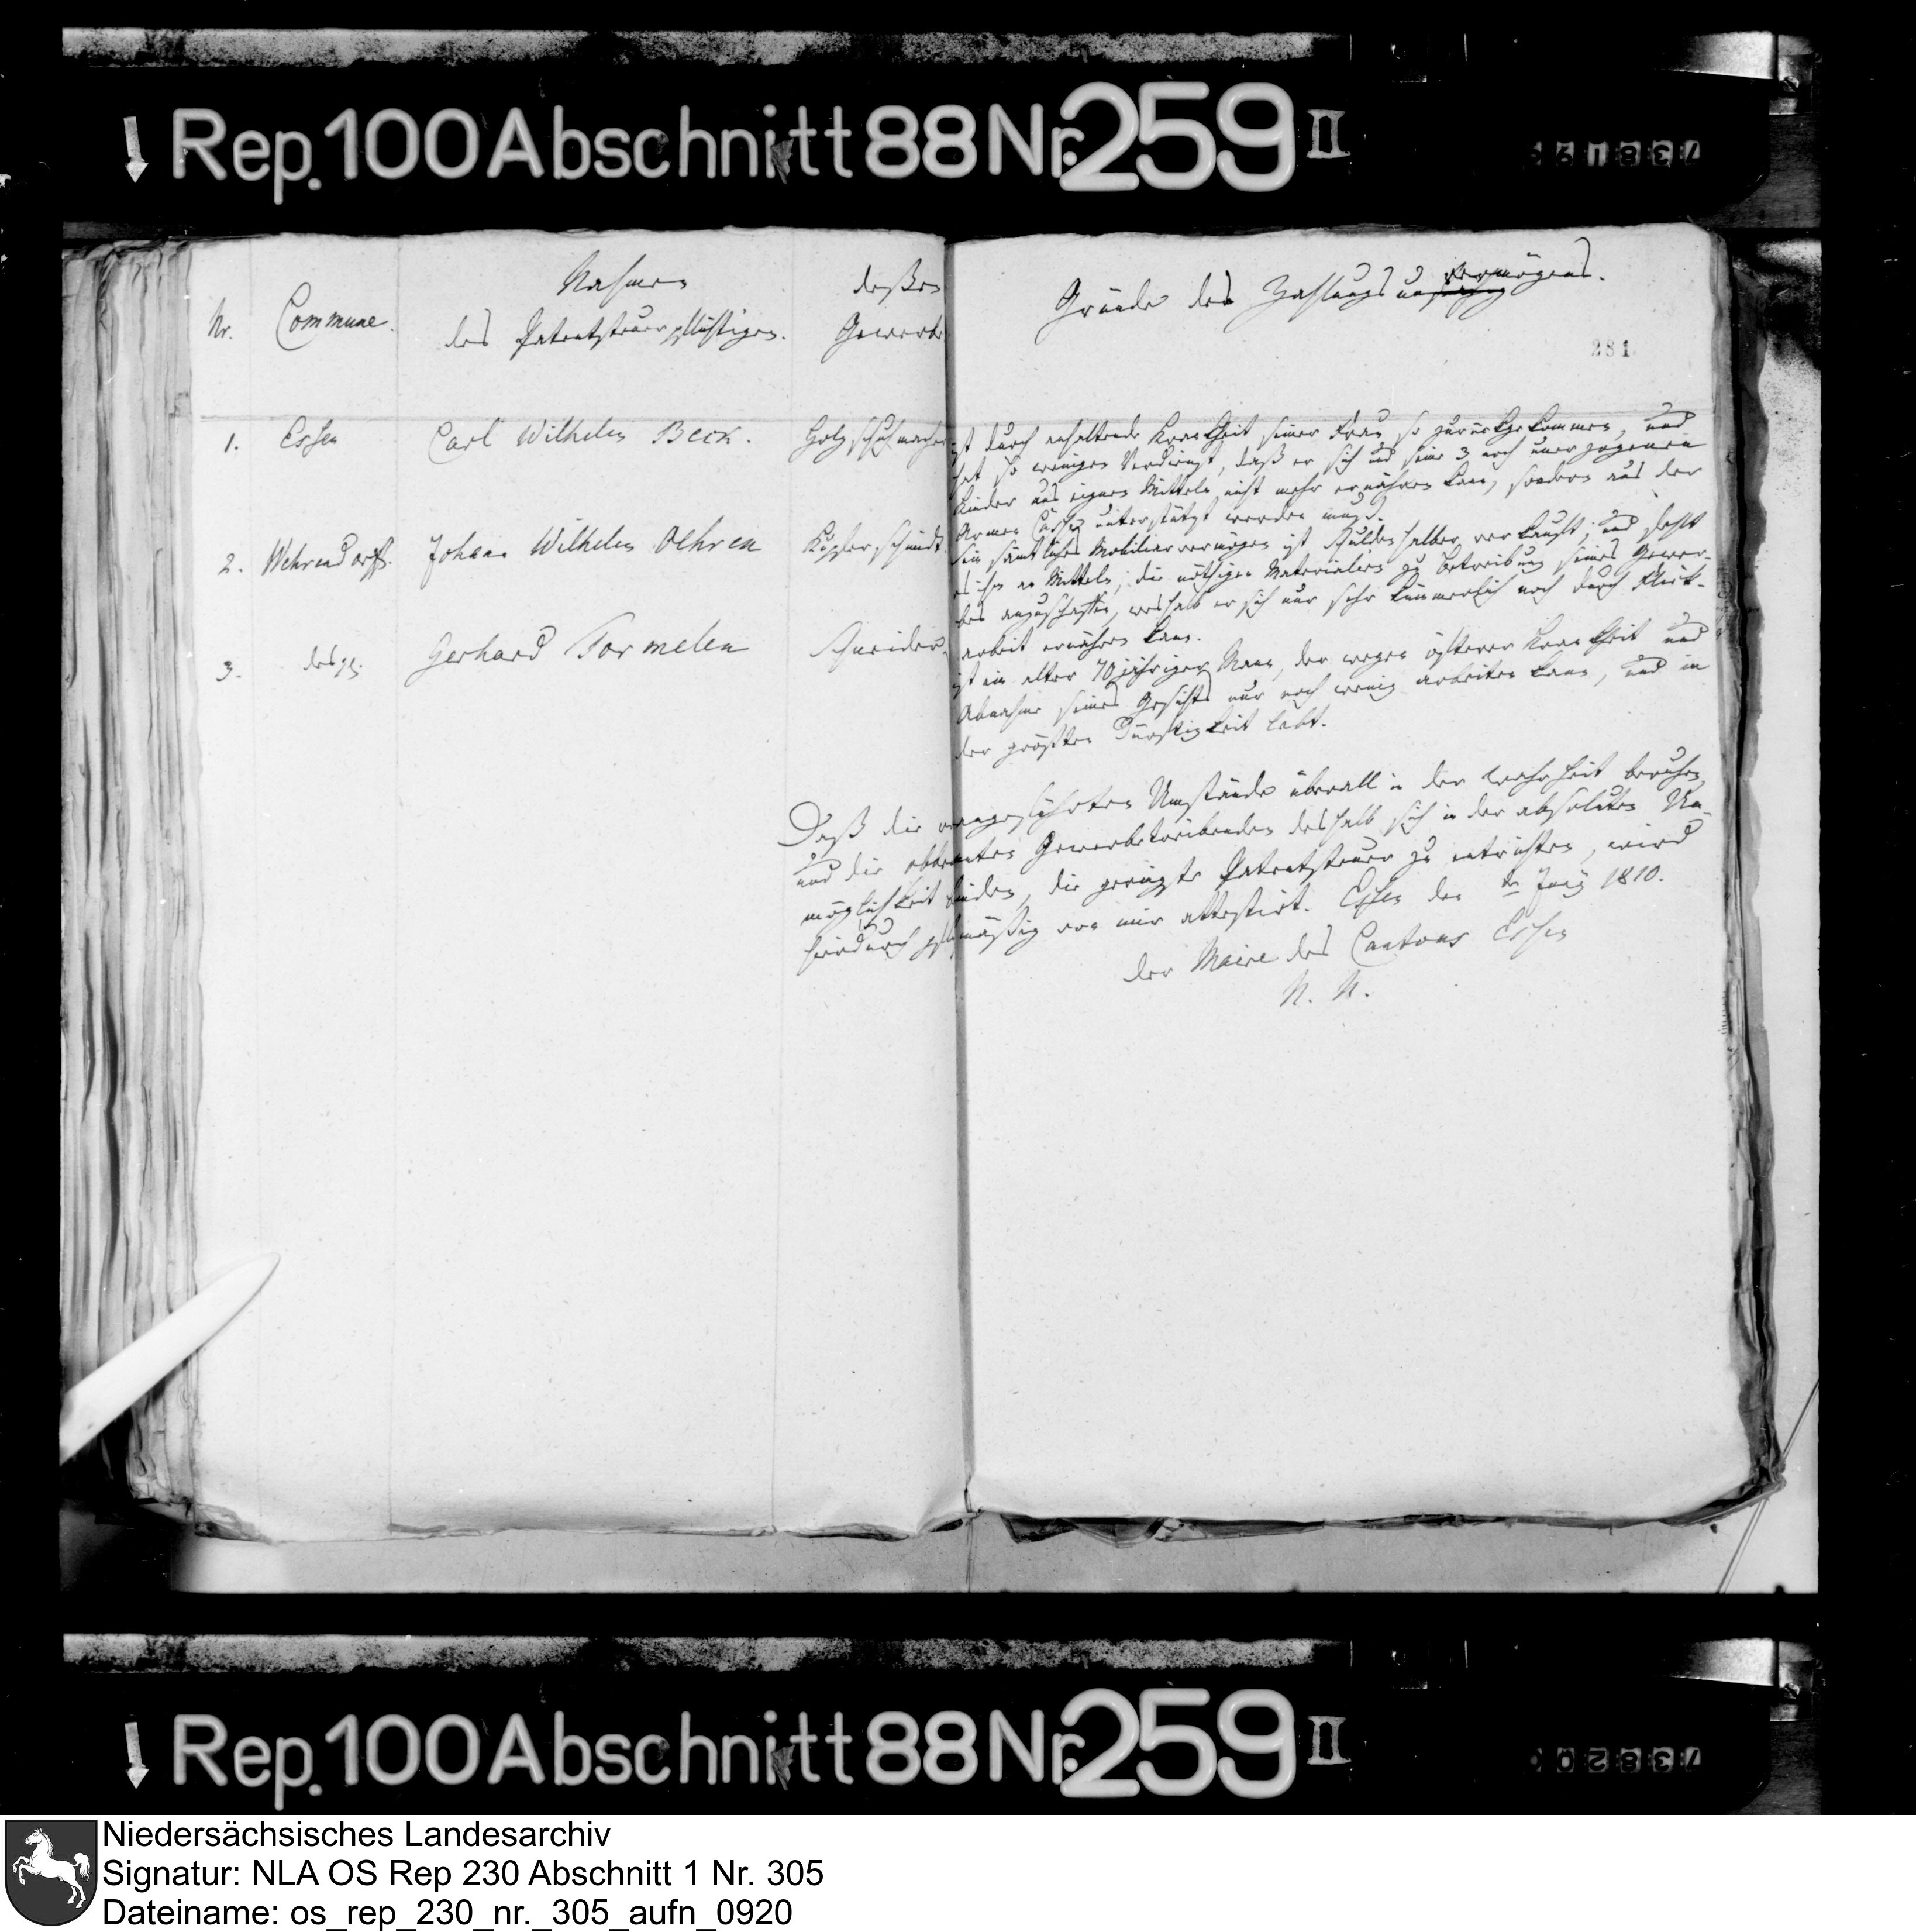 Rep. 100 Abschnitt 88 Nr. 259 II
738195
Nr.
Commune.
Nahmen
des Patentsteuerpflichtigen.
deßen
Gewerbe
Gründe des Zahlungsunvermögens.
281.
1. Essen Carl Wilhelm Beck. Holzschuhmacher
ist durch anhaltende Krankheit seiner Frau so zurückgekommen, und
hat so wenigen Verdienst, daß er sich und seine 3 noch unerzogenen
Kinder aus eignen Mitteln nicht mehr ernähren kann, sondern aus der
Armen Casse unterstützt werden muß.
2. Wehrendorff. Johann Wilhelm Oehren Kupferschmidt
Sein sämtliches Mobiliarvermögen ist Schulden halber verkauft, und fehlt
es ihm an Mitteln, die nöthigen Materialien zu Betreibung seines Gewer-
bes anzuschaffen, weshalb er sich nur sehr kümmerlich noch durch Flick-
arbeit ernähren kann.
3. desgl. Gerhard Tormelen Schneider.
ist ein alter 70jähriger Mann, der wegen öfterer Krankheit und
Abnahme seines Gesichts nur noch wenig arbeiten kann, und in
der größten Dürftigkeit lebt.
Daß die vorangeführten Umstände überall in der Wahrheit beruhen,
und die obbenannten Gewerbetreibenden deshalb sich in der absoluten Un-
möglichkeit finden, die geringste Patentsteuer zu entrichten, wird
hierdurch pflichtmäßig von mir attestirt. Essen den ten Juny 1810.
Der Maire des Cantons Essen
N. N.
Rep. 100 Abschnitt 88 Nr. 259 II
738200
Niedersächsisches Landesarchiv
Signatur: NLA OS Rep 230 Abschnitt 1 Nr. 305
Dateiname: os_rep_230_nr._305_aufn_0920